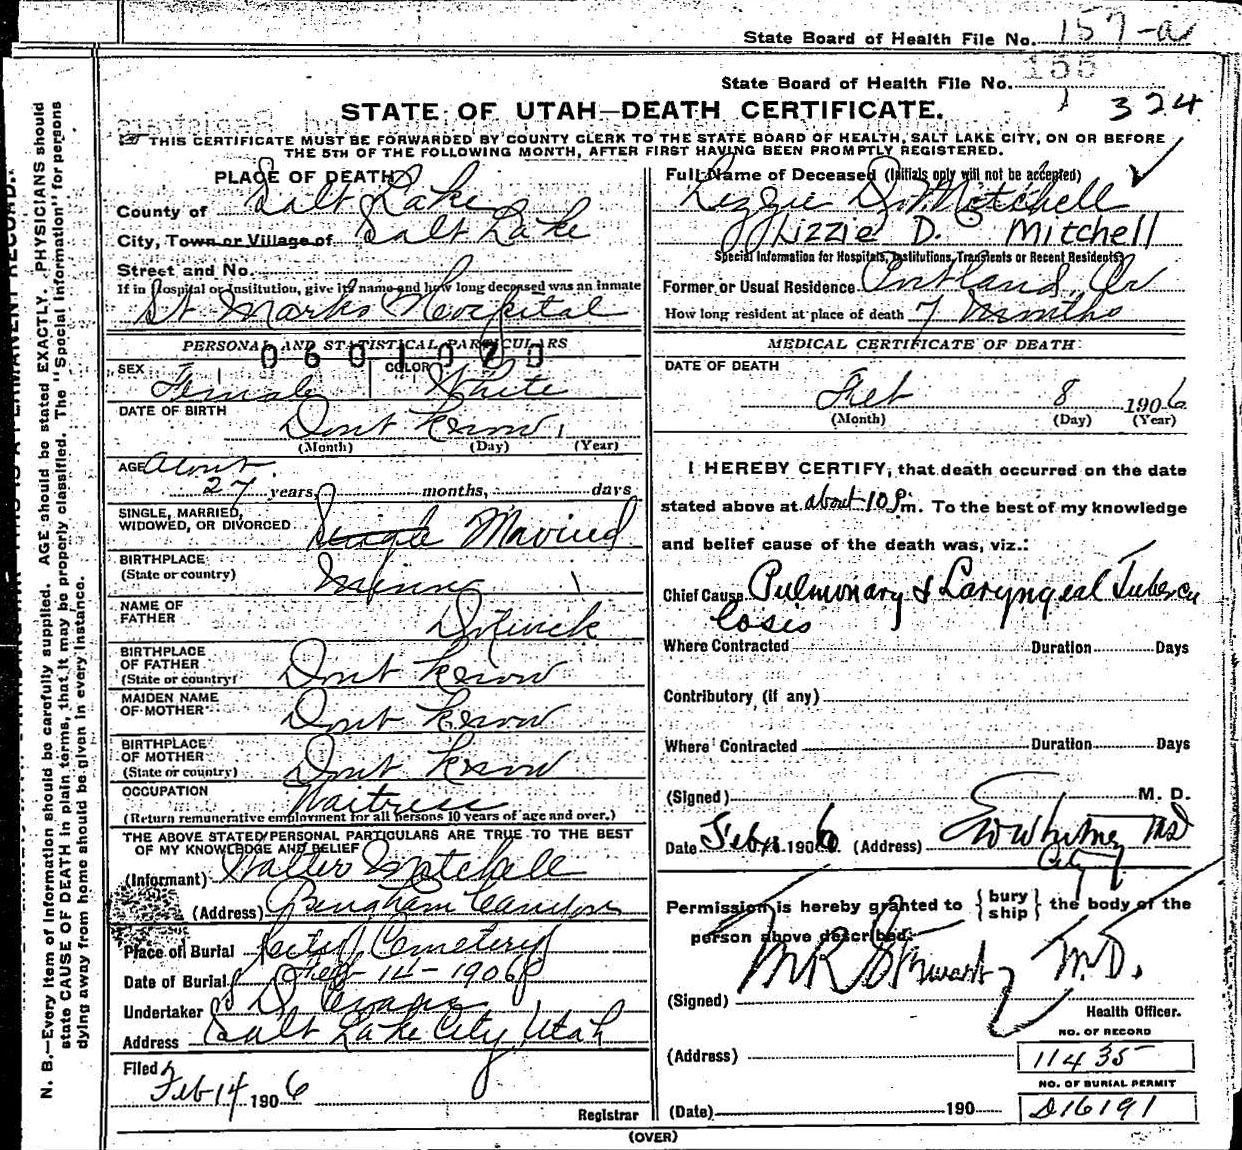 State Board of Health File No. 157-a
State Board of Health File No. 155
324
STATE OF UTAH—DEATH CERTIFICATE.
THIS CERTIFICATE MUST BE FORWARDED BY COUNTY CLERK TO THE STATE BOARD OF HEALTH, SALT LAKE CITY, ON OR BEFORE
THE 5TH OF THE FOLLOWING MONTH, AFTER FIRST HAVING BEEN PROMPTLY REGISTERED.
PLACE OF DEATH
County of Salt Lake
City, Town or Village of Salt Lake
Street and No.
If in Hospital or Institution, give its name and how long deceased was an inmate
St Marks Hospital
PERSONAL AND STATISTICAL PARTICULARS
0601070
SEX Female COLOR White
DATE OF BIRTH Dont Know
(Month) (Day) (Year)
AGE about
27 years, months, days
SINGLE, MARRIED,
WIDOWED, OR DIVORCED Single Married
BIRTHPLACE
(State or country) Minn
NAME OF
FATHER
BIRTHPLACE
OF FATHER
(State or country) Dont Know
MAIDEN NAME
OF MOTHER Dont Know
BIRTHPLACE
OF MOTHER
(State or country) Dont Know
OCCUPATION Waitress
(Return remunerative employment for all persons 10 years of age and over.)
THE ABOVE STATED PERSONAL PARTICULARS ARE TRUE TO THE BEST
OF MY KNOWLEDGE AND BELIEF
(Informant) Walter Mitchell
(Address) Bingham Canyon
Place of Burial City Cemetery
Date of Burial Feb 14-1906
Undertaker S D Evans
Address Salt Lake City, Utah
Filed
Feb 14 1906
Registrar
Full Name of Deceased (Initials only will not be accepted)
Lizzie D. Mitchell
Lizzie D. Mitchell
Special Information for Hospitals, Institutions, Transients or Recent Residents
Former or Usual Residence Portland, Or
How long resident at place of death 7 months
MEDICAL CERTIFICATE OF DEATH
DATE OF DEATH
Feb 8 1906
(Month) (Day) (Year)
I HEREBY CERTIFY, that death occurred on the date
stated above at about 10 P.m. To the best of my knowledge
and belief cause of the death was, viz.:
Chief Cause Pulmonary & Laryngeal Tubercu
losis
Where Contracted Duration Days
Contributory (if any)
Where Contracted Duration Days
(Signed) M. D.
Date Feb 1906 (Address) Whitney MD
City
Permission is hereby granted to {bury ship} the body of the
person above described.
(Signed) M R Stewart M.D.
Health Officer.
NO. OF RECORD
(Address) 11435
NO. OF BURIAL PERMIT
(Date) 190 D16191
(OVER)
N. B.—Every item of information should be carefully supplied. AGE should be stated EXACTLY. PHYSICIANS should
state CAUSE OF DEATH in plain terms, that it may be properly classified. The "Special Information" for persons
dying away from home should be given in every instance.